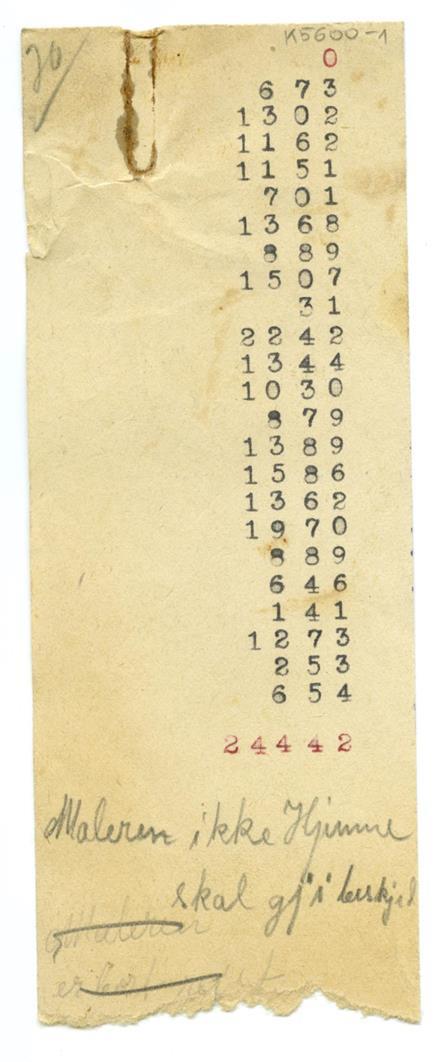 K5600-1
70
0
673
1302
1162
1151
701
1368
889
1507
31
2242
1344
1030
879
1389
1586
1362
1970
889
646
141
1273
253
654
24442
Maleren ikke Hjemme
skal gj'i beskjed
Maleren
er